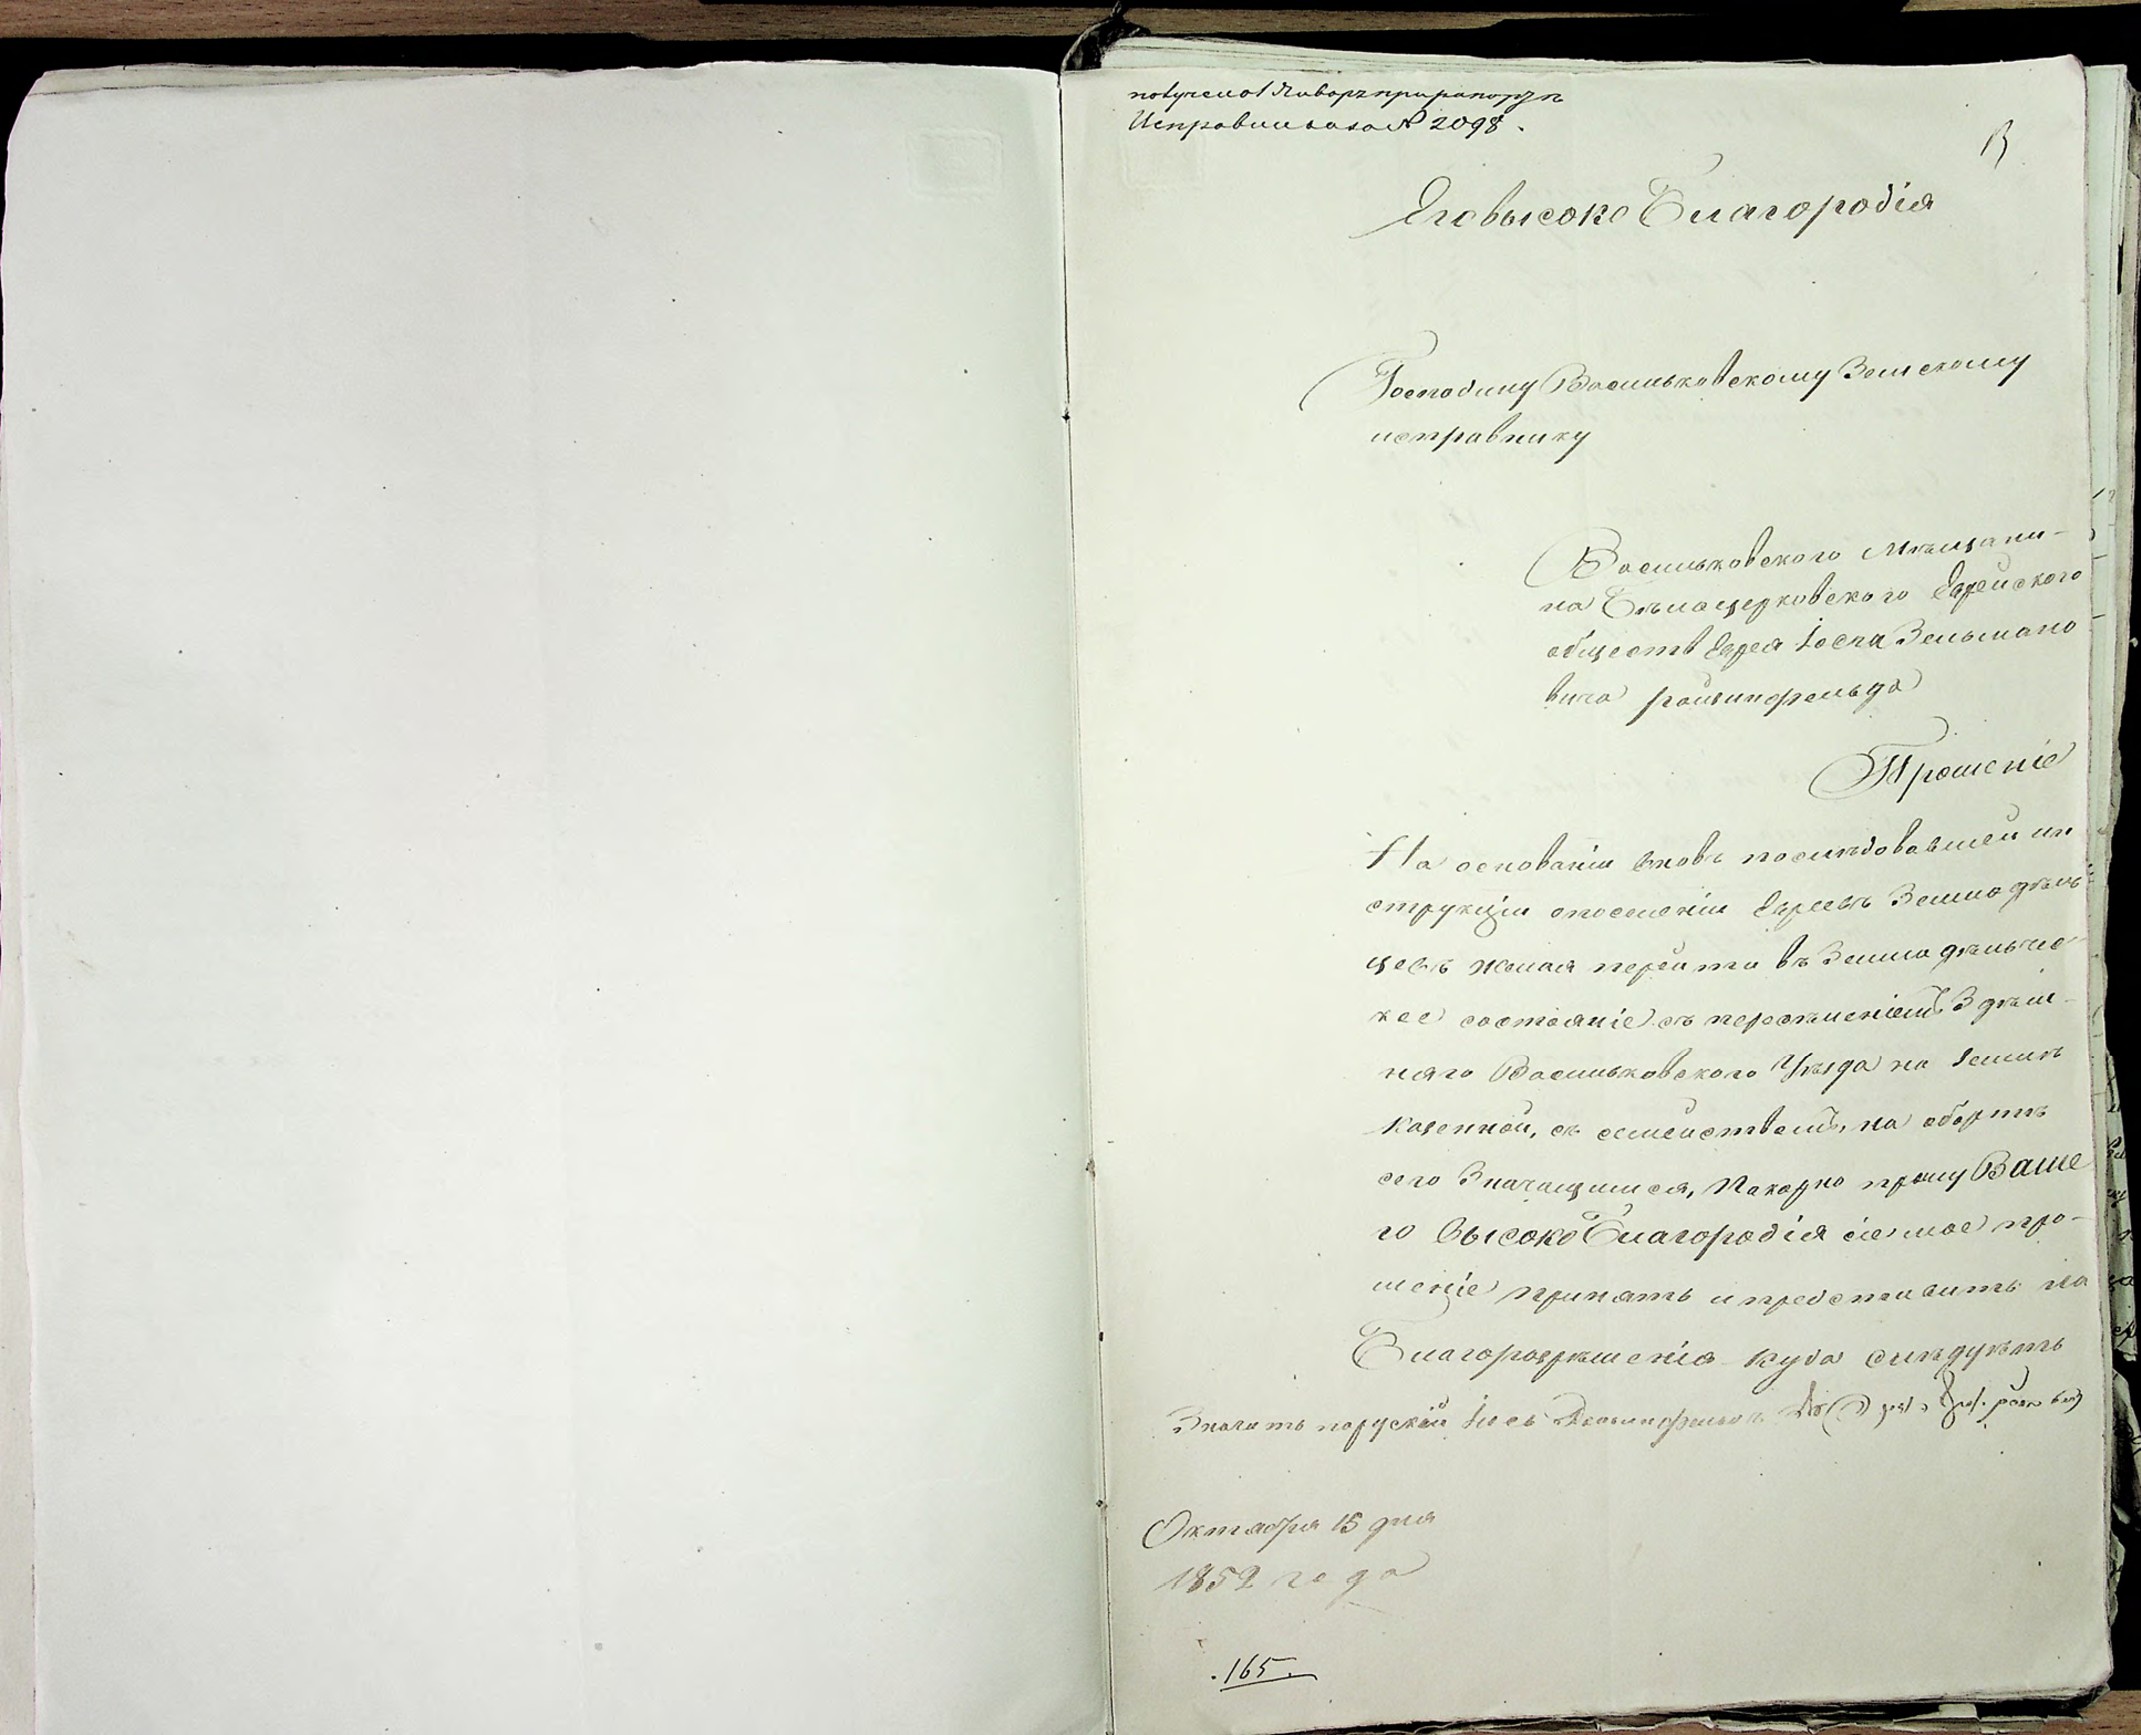 получено 1 Январ при рапортѣ
Исправника № 2098.
Еговысоко Благородія
Господину Васильковскому Земскому
исправнику
Васильковского Мѣщани-
на Бѣлоцерковского Еврейского
обществ Еврея Іося Зельмано
вича
Прошеніе
На основаніи вновь последовавшей ин
струкціи опоселеніи Евреевъ Земледѣль
цевъ желая перейти въ Земледѣльчес
кое состояніе съ переселеніемъ Здѣш-
няго Васильковского Уѣзда на Землѣ
Казенной, съ семействомъ, на оборотѣ
сего Значащимся, Покорно прошу Ваше
го Высоко Благородія сіе мое про-
шеніе принять ипредставить на
Благоразрѣшенія куда слѣдуетъ
Значитъ порускій Іось
Октября 15 дня
1852 года
165.